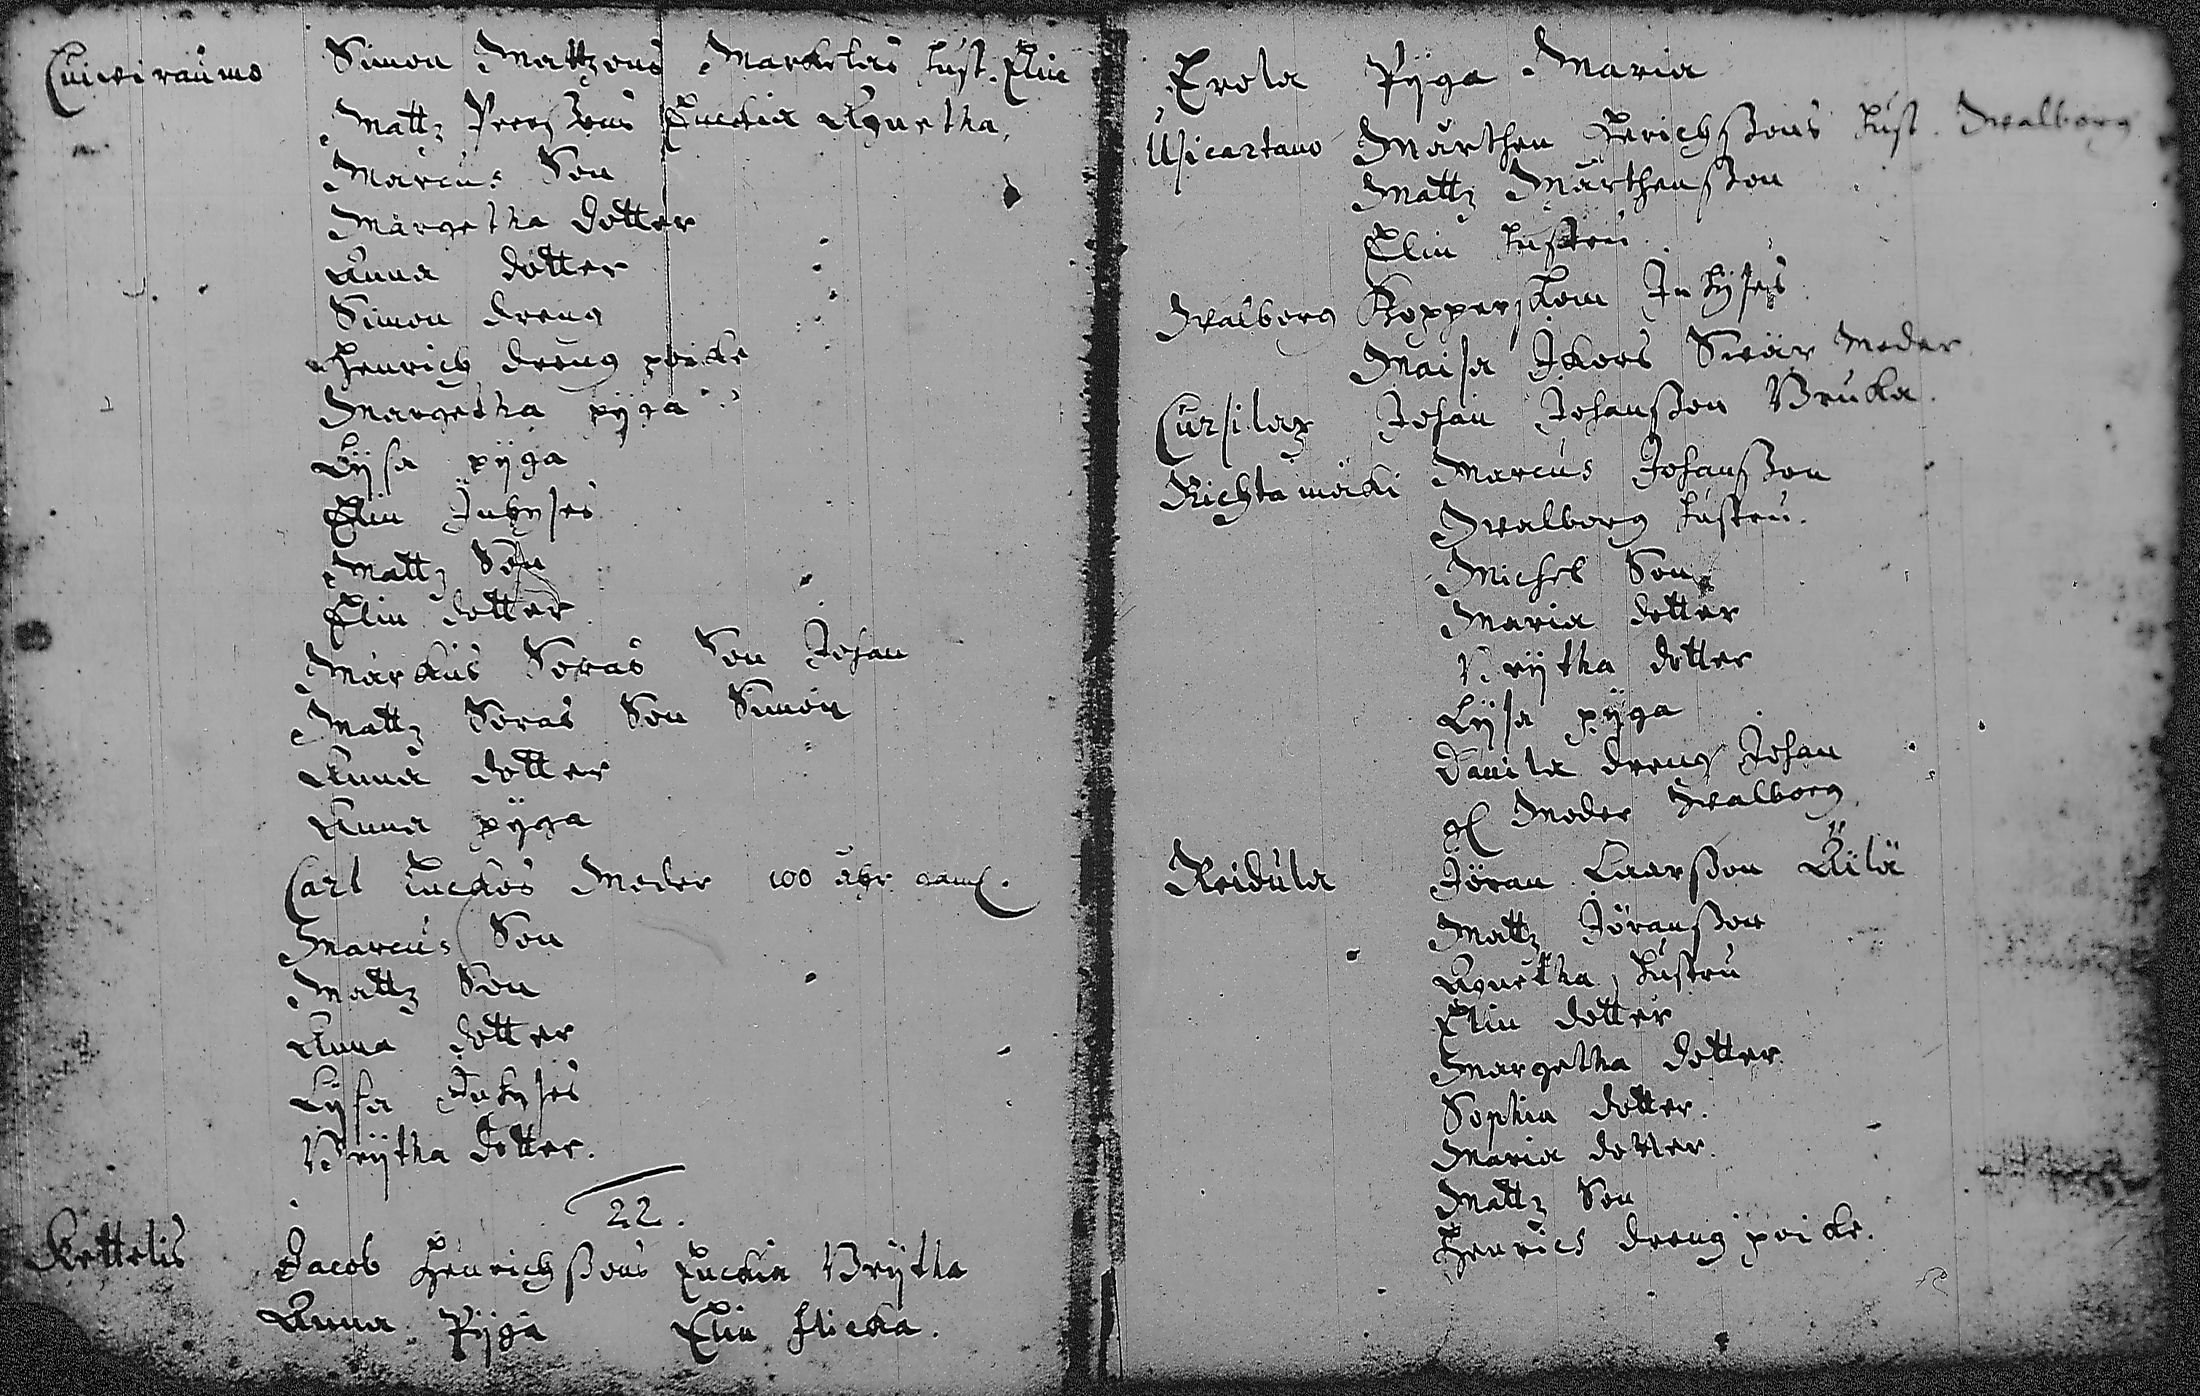 Cuiviraumo Simon Mattzons Markelas hust. Elin
Mattz Peerssons Enckia Agnetha
Marcus Son
Margetha dotter
Anna dotter
Simon dreng
Henrich dreng poicke
Margetha pijga
Lijsa pijga
Elin Inhyses
Mattz Son
Elin dotter
Markus Soras Son Johan
Mattz Soras Son Simon
Anna dotter
Anna pijga
Carl Moder 100 åhr gaml.
Marcus Son
Mattz Son
Anna dotter
Lijsa Inhyses
Brijtha dotter.
22.
Kettelis Jacob Henrichssons Enckia Brijtha
Anna Pijga Elin flicka.
Erola Pijga Maria
Usicartano Mårthen Herichssons hust. Walborg
Mattz Mårthensson
Elin hustru
Walborg Inhyses
Maisa Swär Moder
Cursilax Johan Johansson Bruka.
Richtamäki Marcus Johansson
Walborg hustru.
Michel Son
Maria dotter
Brijtha dotter
Lijsa pijga
Danila dreng Johan
gl Moder Walborg
Reidula Jöran Laarsson Äilä
Mattz Jöransson
Agnetha hustru
Elin dotter
Margetha dotter
Sophia dotter.
Maria dotter.
Mattz Son
Henrich dreng poicke.